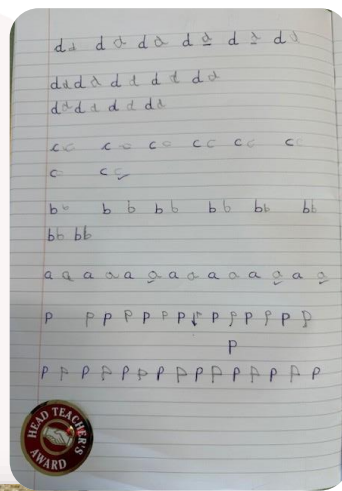 dd dd dd dd dd dd
dddd dd dd dd
dddd dd dd
cc cc cc cc cc cc
c cc
bb bb bb bb bb bb
bb bb
a a a a a a a a a a a a a a
p p p p p p p p p p p p p
p
p p p p p p p p p p p p p p p
HEAD TEACHER'S
AWARD